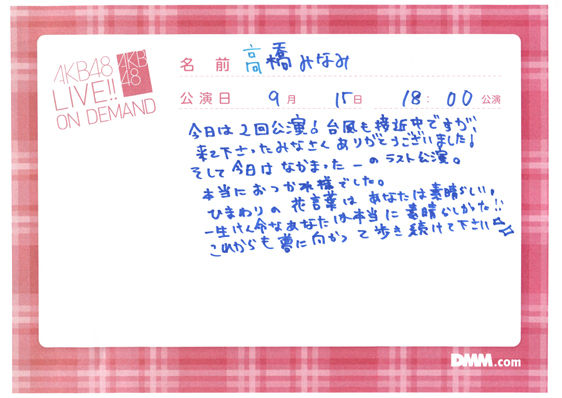 AKB48
LIVE!!
ON DEMAND
AKB
48
名前 高橋みなみ
公演日 9月 15日 18:00 公演
今日は2回公演!台風も接近中ですが、
来て下さったみなさくありがとうございました!
そして今日はなかまったーのラスト公演。
本当におつかれ様でした。
ひまわりの花言葉はあなたは素晴らしい。
一生けん命なあなたは本当に素晴らしかった!!
これからも夢に向かって歩き続けて下さい☆☆
DMM.com